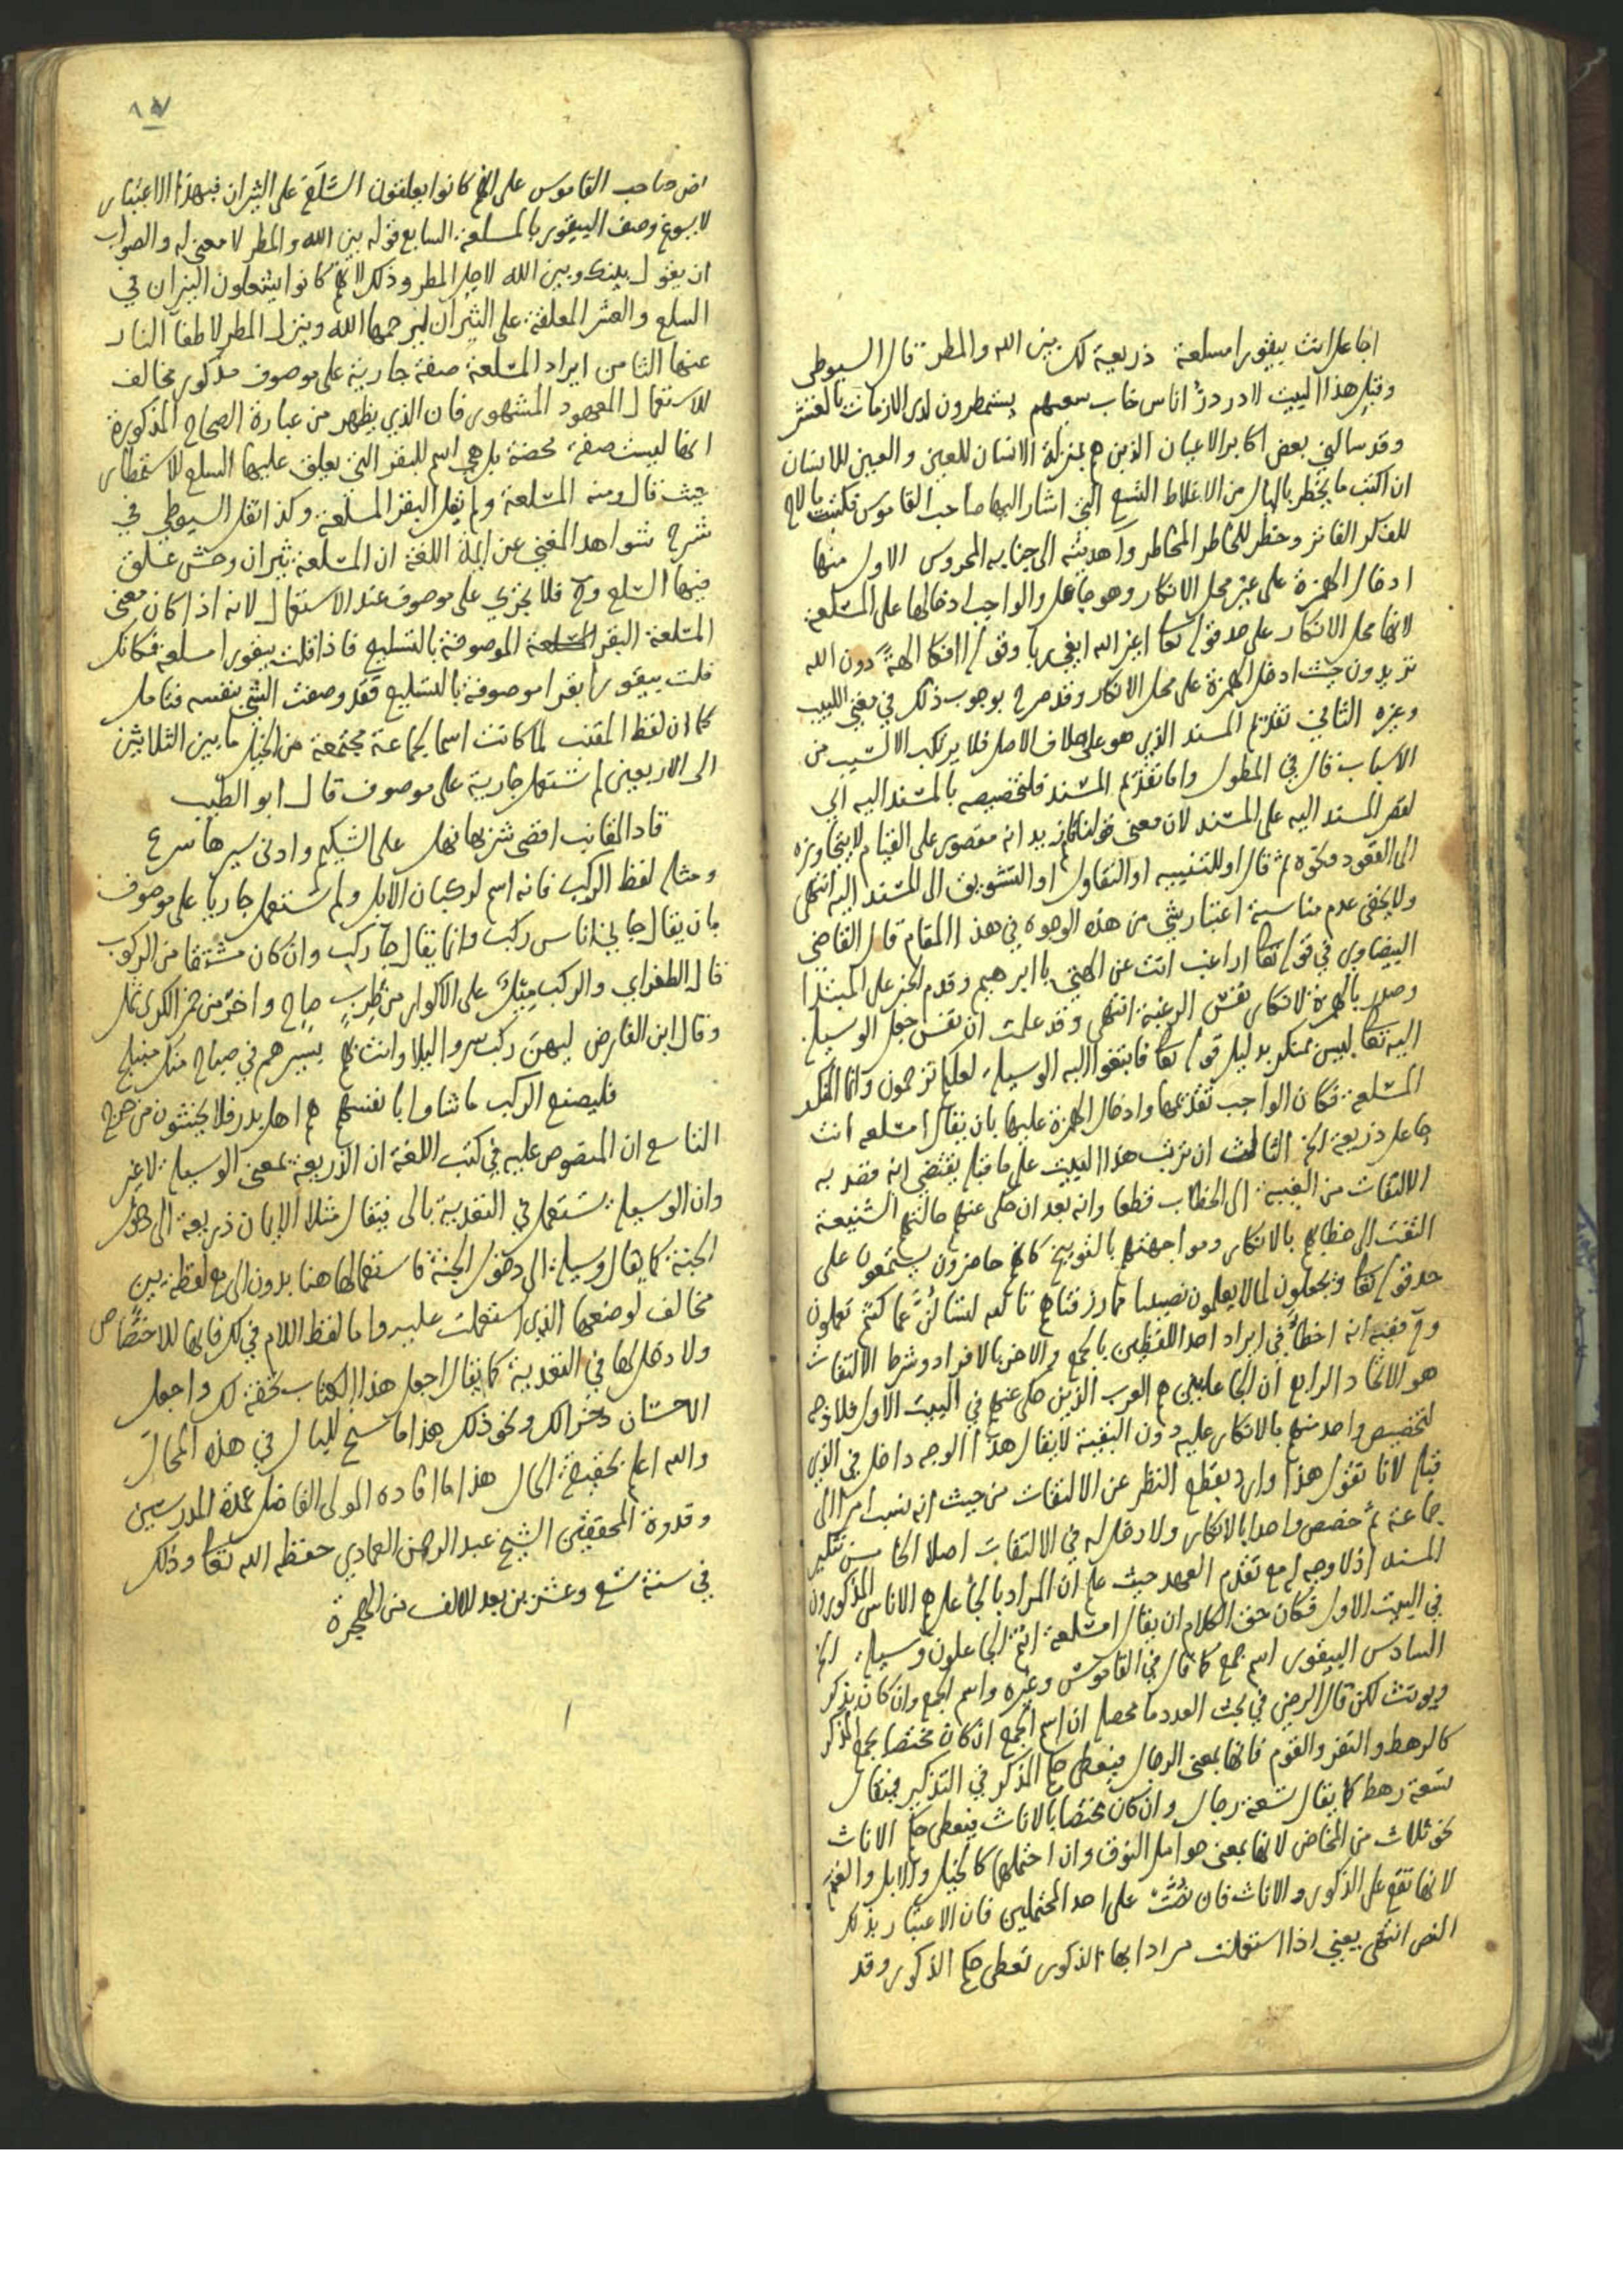 اجاعل انت بيقورا مسلعة ذريعة لك بين الله والمطر قال السيوطي
وقبل هذا البيت لا در در اناس خاب سعيهم يستمطرون لدى الازمات بالعشر
وقد سالني بعض اكابر الاعيان الذين هم بمنزلة الانسان للعين والعين للانسان
ان اكتب ما يخطر بالبال من الاغلاط التسع التي اشار اليها صاحب القاموس فكتبت ما لاح
للفكر الفاتر وخطر للخاطر المخاطر واهديته الى جنابه المحروس الاول منها
ادخال الهمزة على غير محل الانكار وهو جاعل والواجب ادخالها على المسلعة
لانها محل الانكار على حد قوله تعا افغير الله ابغي ربا وقوله اافكا الهة دون الله
تريدون حيث ادخل الهمزة على محل الانكار وقد صرح بوجوب ذلك في مغني اللبيب
وغيره الثاني تقديم المسند الذي هو على خلاف الاصل فلا يرتكب الا لسبب من
الاسباب قال في المطول واما تقديم المسند فلتخصيصه بالمسند اليه اي
لقصر المسند اليه على المسند لان معنى قولنا قائم زيد انه مقصور على القيام لا يتجاوزه
الى القعود ونحوه ثم قال او للتنبيه او التفاول او التشويق الى المسند اليه انتهى
ولا يخفى عدم مناسبة اعتبار شي من هذه الوجوه في هذا المقام قال القاضي
البيضاوي في قوله تعا اراغب انت عن الهتي يا ابرهيم وقدم الخبر على المبتدا
وصدر بالهمزة لانكار نفس الرغبة انتهى وقد علمت ان نفس جعل الوسيلة
اليه تعا ليس بمنكر بدليل قوله تعا فابتغوا اليه الوسيلة لعلكم ترحمون وانما المنكر
المسلعة فكان الواجب تقديمها وادخال الهمزة عليها بان يقال امسلعة انت
جاعل ذريعة الخ الثالث ان ترتب هذا البيت على ما قبله يقتضي انه قصد به
الالتفات من الغيبة الى الخطاب قطعا وانه بعد ان حكى عنهم حالتهم الشنيعة
التفت الى خطابهم بالانكار ومواجهتهم بالتوبيخ كانهم حاضرون يستمعون على
حد قوله تعا ويجعلون لما لا يعلمون نصيبا مما رزقناهم تالله لتسالن عما كنتم تعملون
وح ففيه انه اخطا في ايراد احد اللفظين بالجمع والاخر بالافراد وشرط الالتفات
هو الاتحاد الرابع ان الجاعلين هم العرب الذين حكى عنهم في البيت الاول فلا وجه
لتخصيص واحد منهم بالانكار عليه دون البقية لا يقال هذا الوجه داخل في الذي
قبله لانا نقول هذا وارد بقطع النظر عن الالتفات من حيث انه نسب امرا الى
جماعة ثم خصص واحدا بالانكار ولا دخل له في الالتفات اصلا الخامس تنكير
المسند اذ لا وجه له مع تقدم العهد حيث علم ان المراد بالجاعل هم الاناس المذكورون
في البيت الاول فكان حق الكلام ان يقال امسلعة انتم الجاعلون وسيلة الخ
السادس البيقور اسم جمع كما قال في القاموس وغيره واسم الجمع وان كان يذكر
ويونث لكن قال الرضي في بحث العدد ما محصله ان اسم الجمع ان كان مختصا بجمع المذكر
كالرهط والنفر والقوم فانها بمعنى الرجال فيعطى حكم المذكر في التذكير فيقال
تسعة رهط كما يقال تسعة رجال وان كان مختصا بالاناث فيعطى حكم الاناث
نحو ثلاث من المخاض لانها بمعنى حوامل النوق وان احتملها كالخيل والابل والغنم
لانها تقع على الذكور والاناث فان نصت على احد المحتملين فان الاعتبار بذلك
النص انتهى يعني اذا استعملت مرادا بها الذكور تعطى حكم الذكور وقد
نص صاحب القاموس على انهم كانوا يعلقون السلع على الثيران فبهذا الاعتبار
لا يسوغ وصف البيقور بالمسلعة السابع قوله بين الله والمطر لا معنى له والصواب
ان يقول بينك وبين الله لاجل المطر وذلك لانهم كانوا يشعلون النيران في
السلع والعشر المعلقة على الثيران ليرحمها الله وينزل المطر لاطفا النار
عنها الثامن ايراد المسلعة صفة جارية على موصوف مذكور مخالف
للاستعمال المعهود المشهور فان الذي يظهر من عبارة الصحاح المذكورة
انها ليست صفة محضة بل هي اسم للبقر التي يعلق عليها السلع للاستمطار
حيث قال ومنه المسلعة ولم يقل البقر المسلعة وكذا نقل السيوطي في
شرح شواهد المغني عن ايمة اللغة ان المسلعة ثيران وحش علق
فيها السلع وح فلا يجري على موصوف عند الاستعمال لانه اذا كان معنى
المسلعة البقر الموصوفة بالتسليع فاذا قلت بيقورا مسلعة فكانك
قلت بيقورا بقرا موصوفة بالتسليع فقد وصفت الشي بنفسه فتامل
كما ان لفظ المقنب لما كانت اسما لجماعة مجتمعة من الخيل ما بين الثلاثين
الى الاربعين لم تستعمل جارية على موصوف قال ابو الطيب
قاد المقانب اقصى شربها نهل على الشكيم وادنى سيرها سرع
ومثله لفظ الركب فانه اسم لركبان الابل ولم تستعمل جاريا على موصوف
بان يقال جاني اناس ركب وانما يقال جا ركب وان كان مشتقا من الركوب
قال الطغراي والركب ميل على الاكوار من طرب صاح واخر من خمر الكرى ثمل
وقال ابن الفارض ليهن ركب سروا ليلا وانت بهم بسيرهم في صباح منك منبلج
فليصنع الركب ما شاوا بانفسهم هم اهل بدر فلا يخشون من حرج
التاسع ان المنصوص عليه في كتب اللغة ان الذريعة بمعنى الوسيلة لا غير
وان الوسيلة تستعمل في التعدية بالى فيقال مثلا الايمان ذريعة الى دخول
الجنة كما يقال وسيلة الى دخول الجنة فاستعمالها هنا بدون الى مع لفظة بين
مخالف لوضعها الذي استعملت عليه واما لفظ اللام في لك فانها للاختصاص
ولا دخل لها في التعدية كما يقال اجعل هذا الكتاب تحفة لك واجعل
الاحسان ذخرا لك ونحو ذلك هذا ما سنح للبال في هذه المحال
والله اعلم بحقيقة الحال هذا ما افاده المولى الفاضل عمدة المدرسين
وقدوة المحققين الشيخ عبد الرحمن العمادي حفظه الله تعا وذلك
في سنة تسع وعشرين بعد الالف من الهجرة